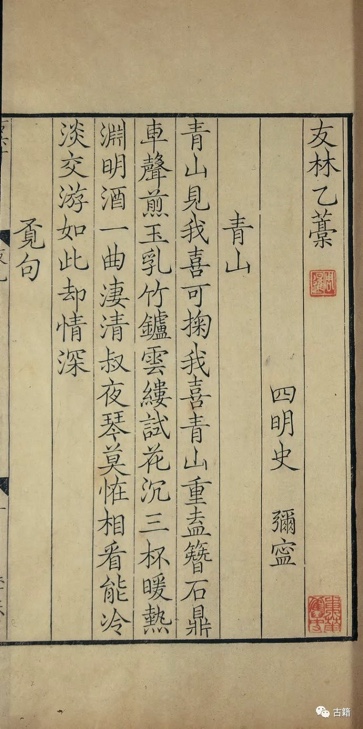 友林乙藁
四明史 彌寧
青山
青山見我喜可掬我喜青山重盍簪石鼎
車聲煎玉乳竹鑪雲縷試花沉三杯暖熱
淵明酒一曲淒清叔夜琴莫恠相看能冷
淡交游如此却情深
覓句
古籍